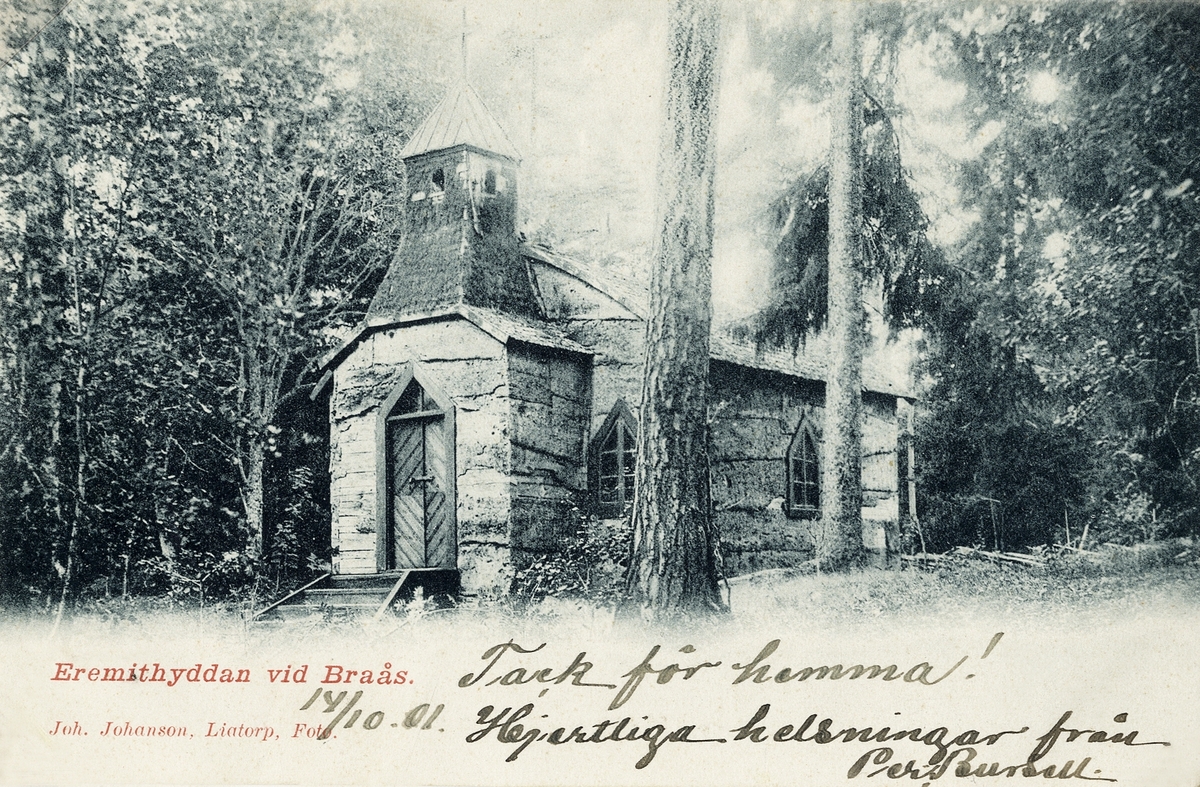 Eremithyddan vid Braås.
Tack för hemma!
Joh. Johanson, Liatorp, Foto.
14/10.01.
Hjertliga helsningar från
Per Bursell.